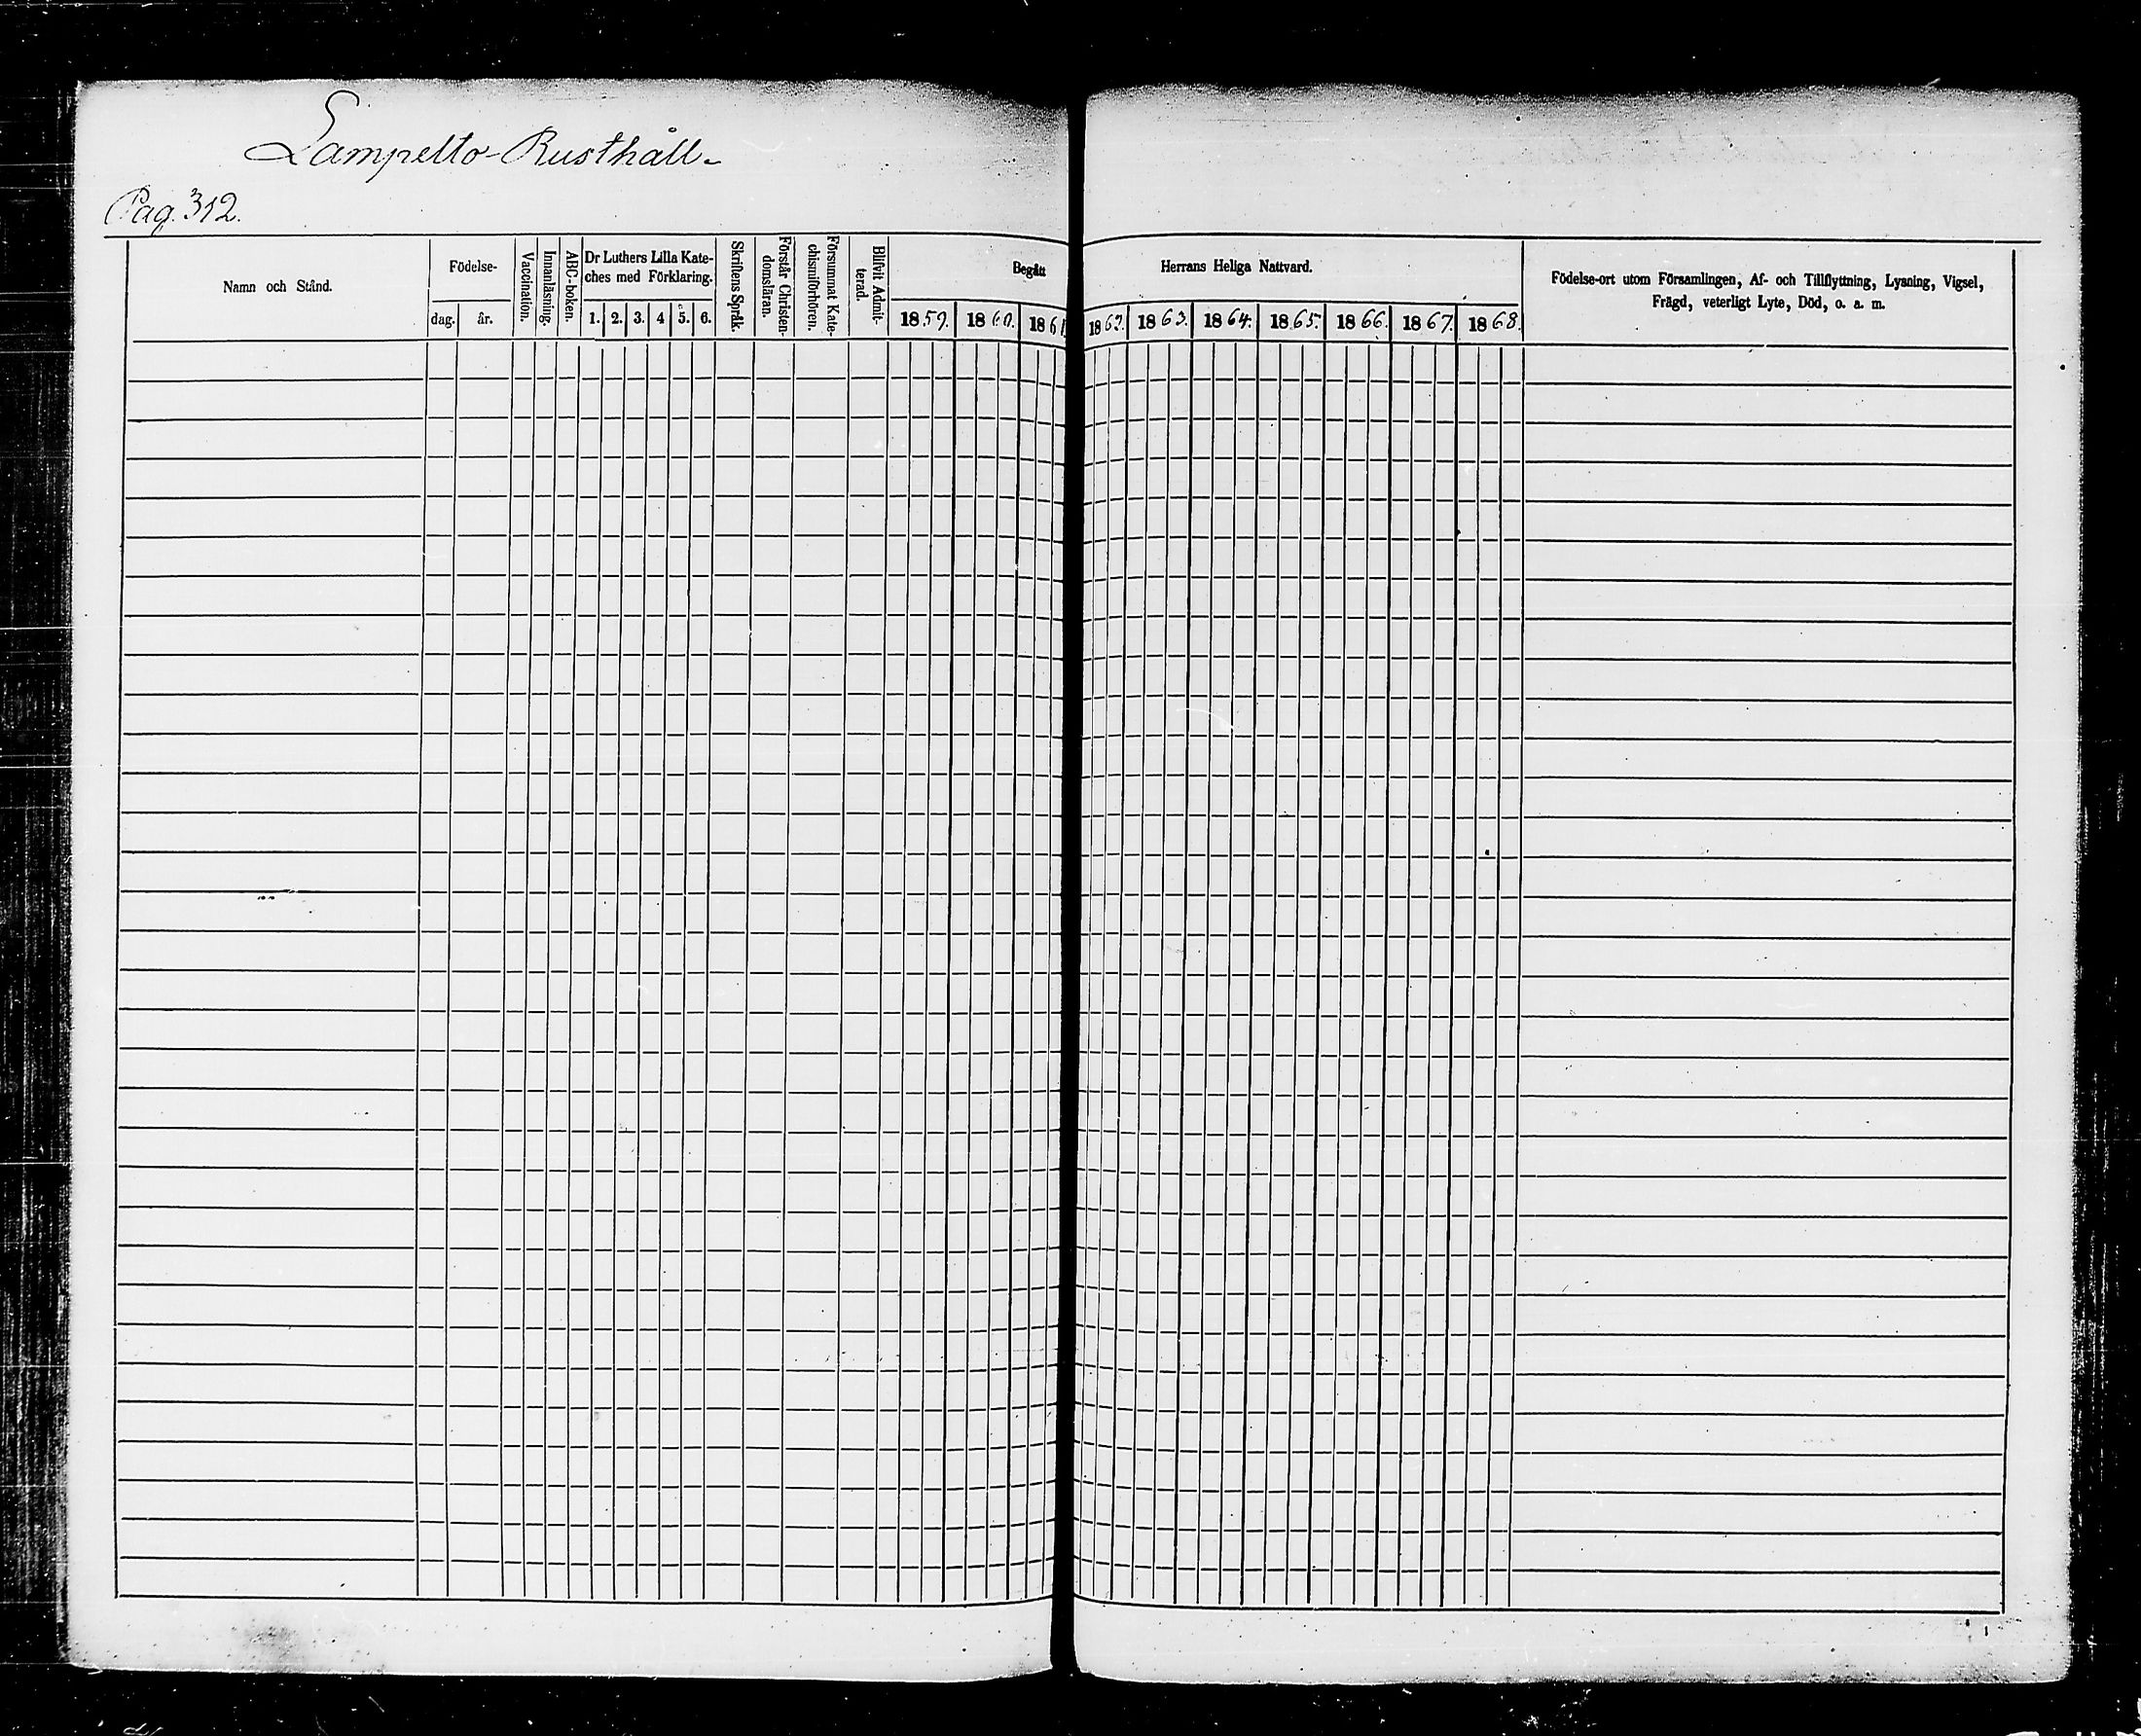 Lampelto-Rusthåll.
Pag. 312.
Namn och Stånd.
Födelse-
dag.
år.
Vaccination.
Innanläsning.
ABC-boken.
Dr Luthers Lilla Kate-
ches med Förklaring.
1. 2. 3. 4 5. 6.
Skriftens Språk.
Förstår Christen-
domsläran.
Försummat Kate-
chismiförhören.
Blifvit Admit-
terad.
Begått Herrans Heliga Nattvard.
1859. 1860. 1861 1862. 1863. 1864. 1865. 1866. 1867. 1868.
Födelse-ort utom Församlingen, Af- och Tillflyttning, Lysning, Vigsel,
Frägd, veterligt Lyte, Död, o. a. m.